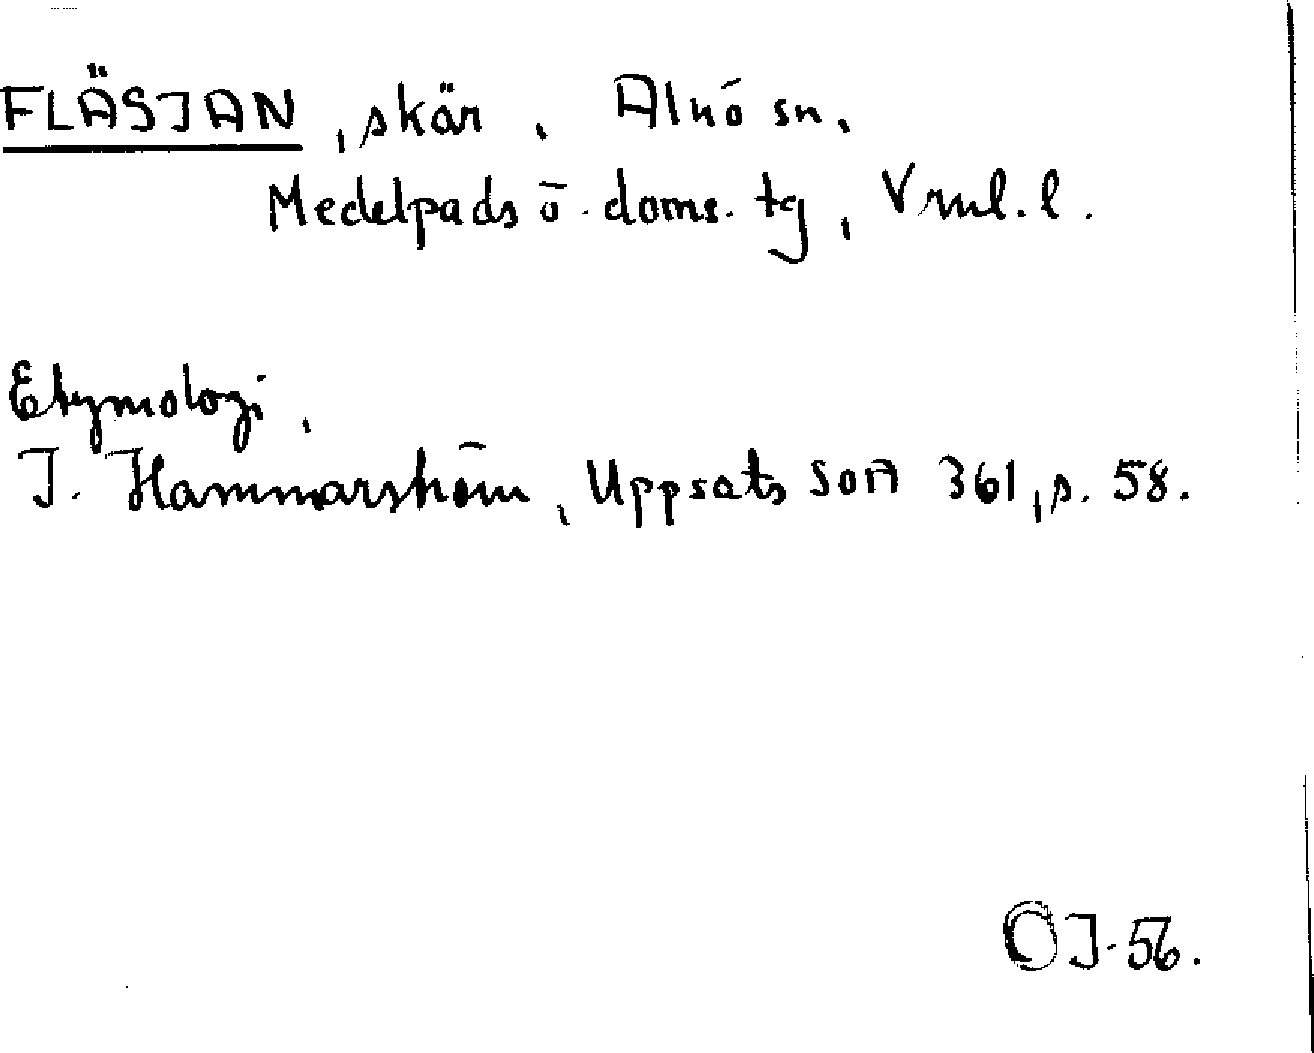 FLÄSJAN, skär, Alnö sn.
Medelpads ö. doms. tg, Vrnl. l.
Etymologi,
J. Hammarström, Uppsats SOA 361, s. 58.
OJ-56.